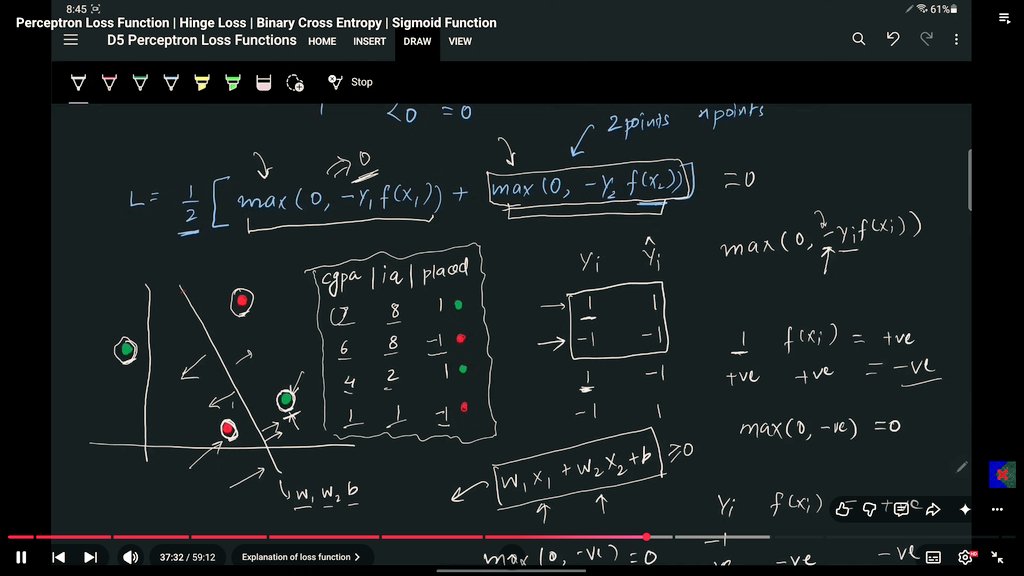 8:45
61%
Perceptron Loss Function | Hinge Loss | Binary Cross Entropy | Sigmoid Function
D5 Perceptron Loss Functions HOME INSERT DRAW VIEW
Stop
<0 =0
2 points n points
0
L = 1/2 [ max (0, -Y₁ f(x₁)) + max (0, -Y₂ f(x₂)) ] =0
max (0, -Yi f(xi))
cgpa | iq | placed
7 8 1
6 8 -1
4 2 1
1 1 -1
Yi Ŷi
1 1
-1 -1
1 -1
-1 1
1 f(xi) = +ve
+ve +ve = -ve
max(0, -ve) =0
w₁x₁ + w₂x₂ + b ≥0
w₁ w₂ b
Yi f(xi)
-1
-ve -ve
max (0, -ve) =0
37:32 / 59:12 Explanation of loss function >
HD